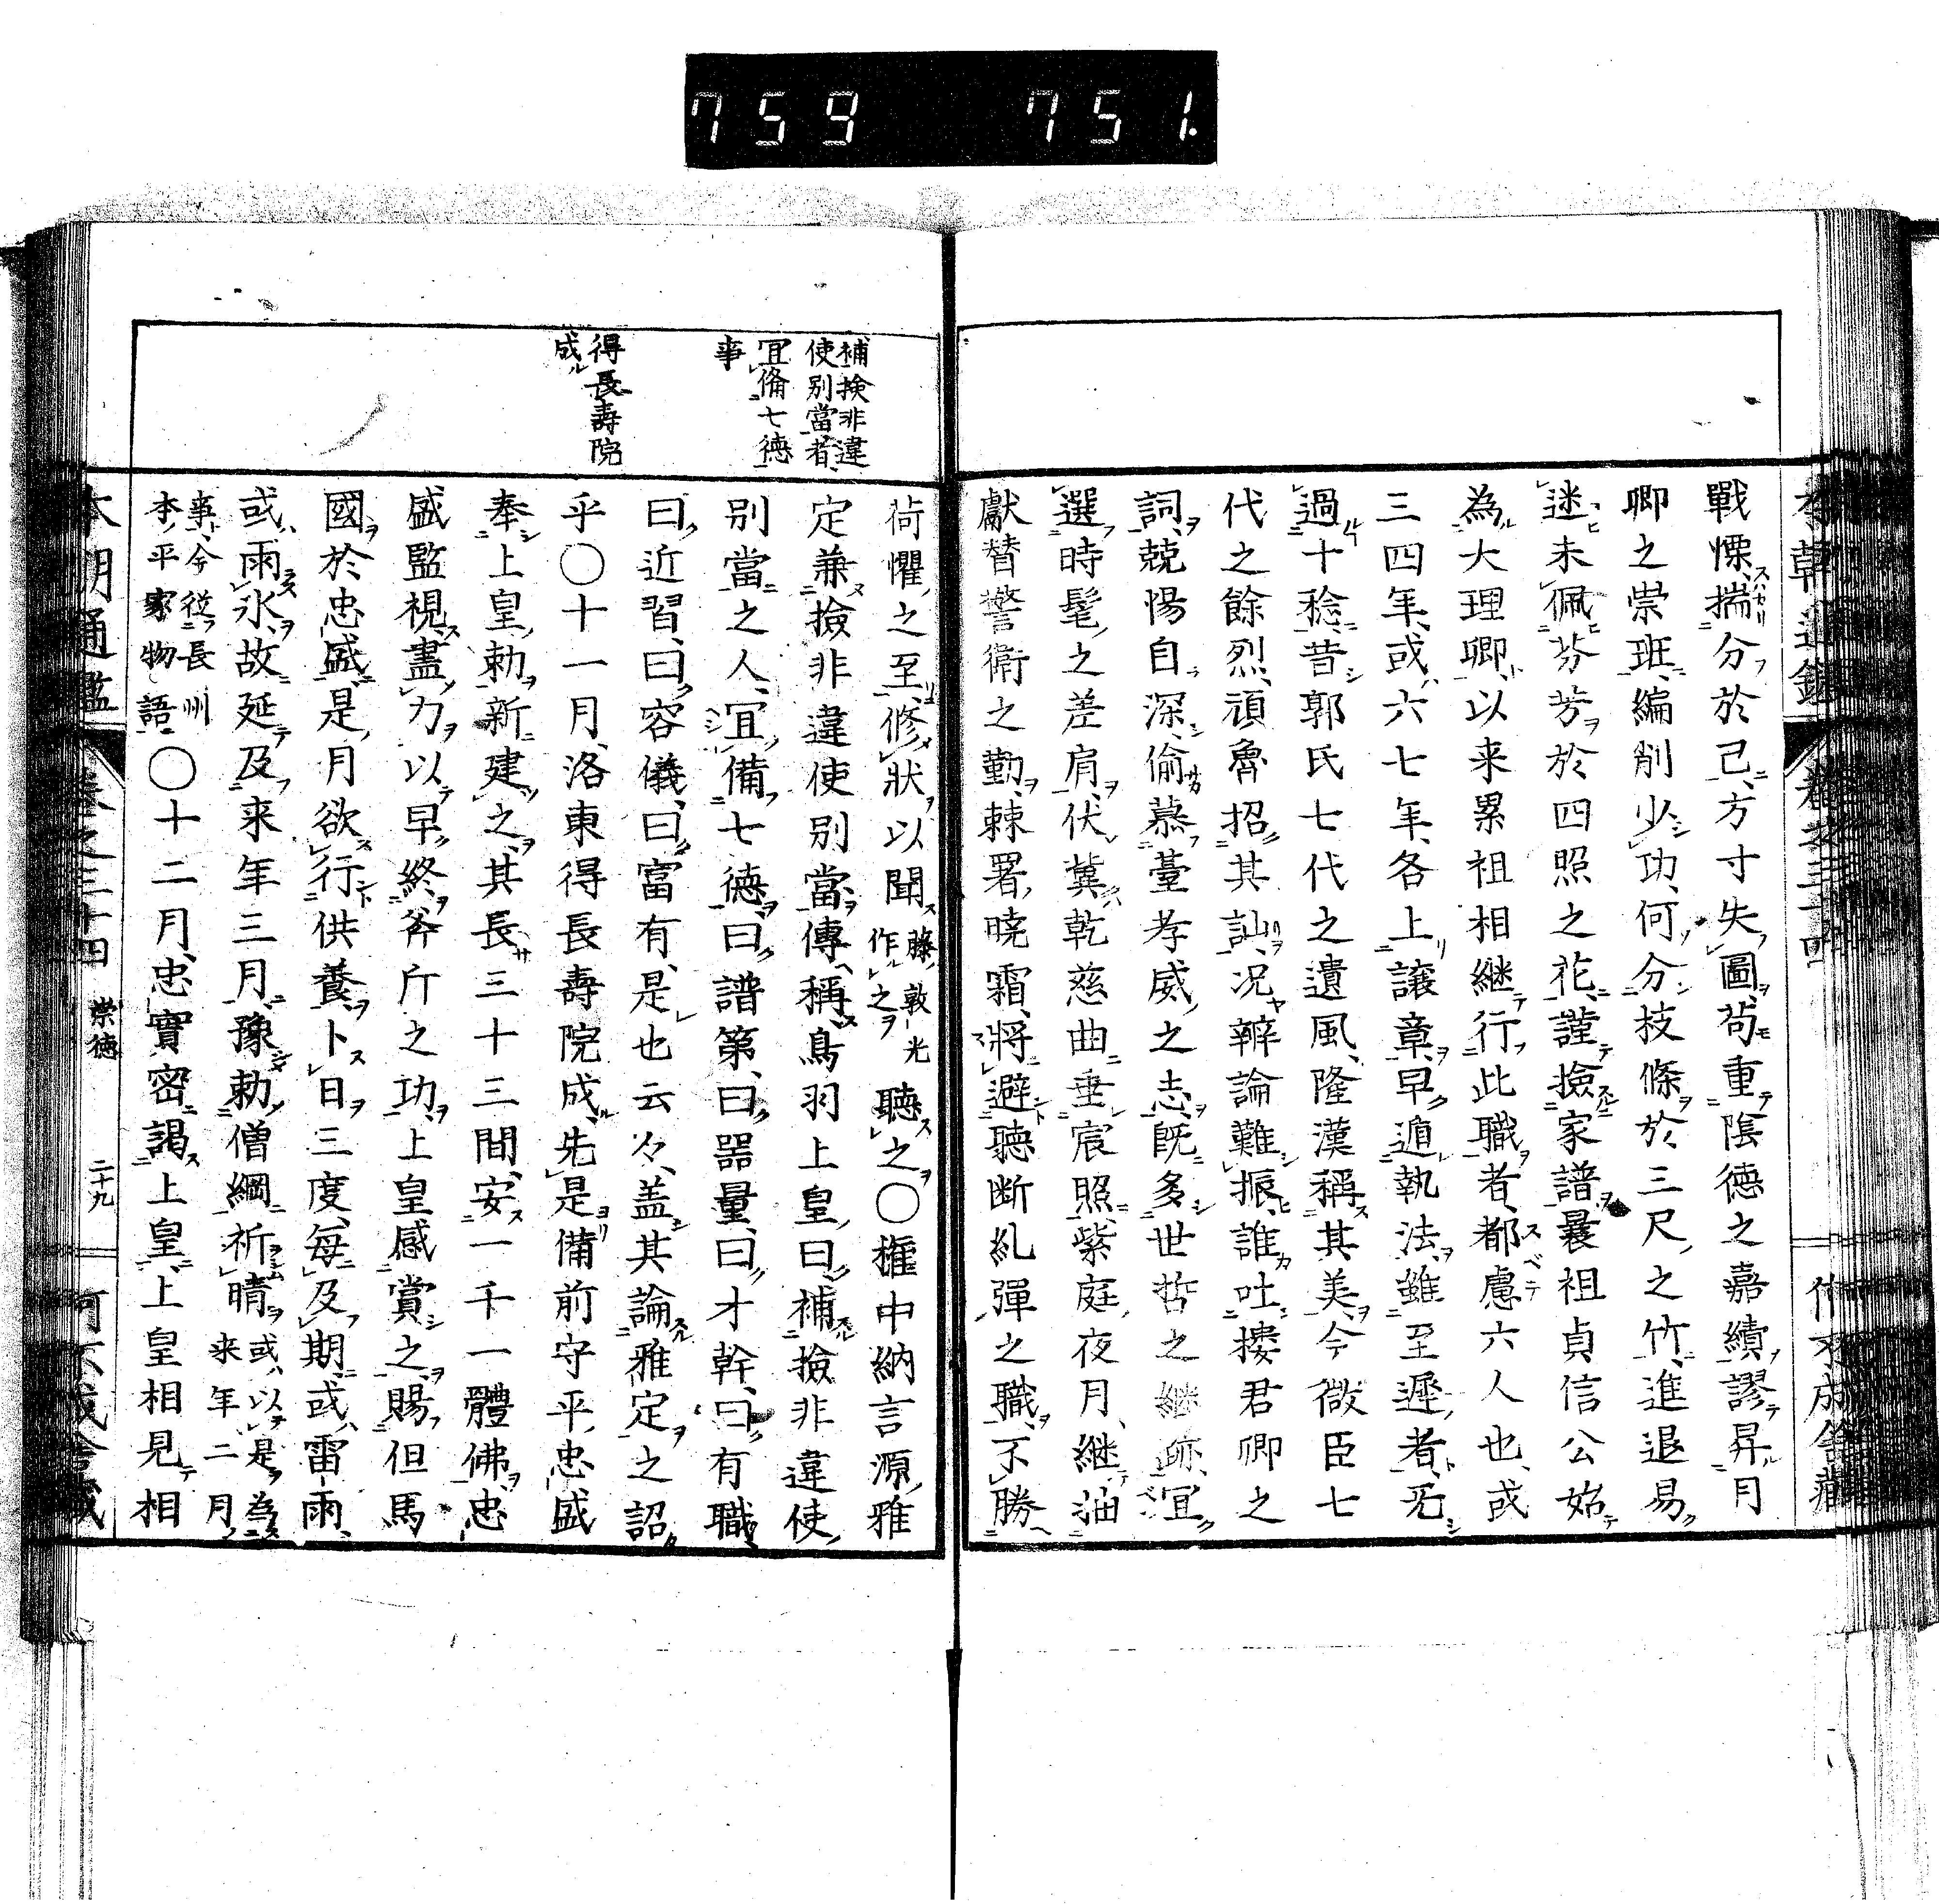 759 751.
戰慄、揣分於己、方寸失圖、苟重陰德之嘉績、謬昇月
卿之崇班、編削少功、何分枝條於三尺之竹、進退易
迷、未佩芬芳於四照之花、謹撿家譜、曩祖貞信公始
為大理卿、以来累祖相継行此職者、都慮六人也、或
三四年、或六七年、各上讓章、早遁執法、雖至遲者、无
過十稔、昔郭氏七代之遺風、隆漢稱其美、今微臣七
代之餘烈、頑魯招其訕、况辭論難振、誰吐摟君卿之
詞、兢惕自深、偷慕臺孝威之志、既多世哲之継跡、宜
選時髦之差肩、伏冀乾慈曲垂宸照、紫庭夜月、継
獻替警衛之勤、棘署曉霜、將避聽断糺彈之職、不勝
補撿非違
使别當者、
宜備七德
事
得長壽院
成
荷懼之至、修狀以聞 藤敦光
作之 聽之〇權中納言源雅
定兼撿非違使别當、傳稱、鳥羽上皇曰、補撿非違使
别當之人、宜備七德、曰譜第、曰器量、曰才幹、曰有職、
曰近習、曰容儀、曰富有、是也云々、盖其論雅定之詔
乎〇十一月、洛東得長壽院成、先是備前守平忠盛
奉上皇勅新建之、其長三十三間、安一千一體佛、忠
盛監視、盡力以早終斧斤之功、上皇感賞之、賜但馬
國於忠盛、是月欲行供養、卜日三度、每及期、或雷雨、
或雨氷、故延及来年三月、豫勅僧綱祈晴 或以是為
来年二月
事、今従長州
本平家物語 〇十二月、忠實密謁上皇、上皇相見相
本朝通鑑 卷之三十四 崇德 二十九